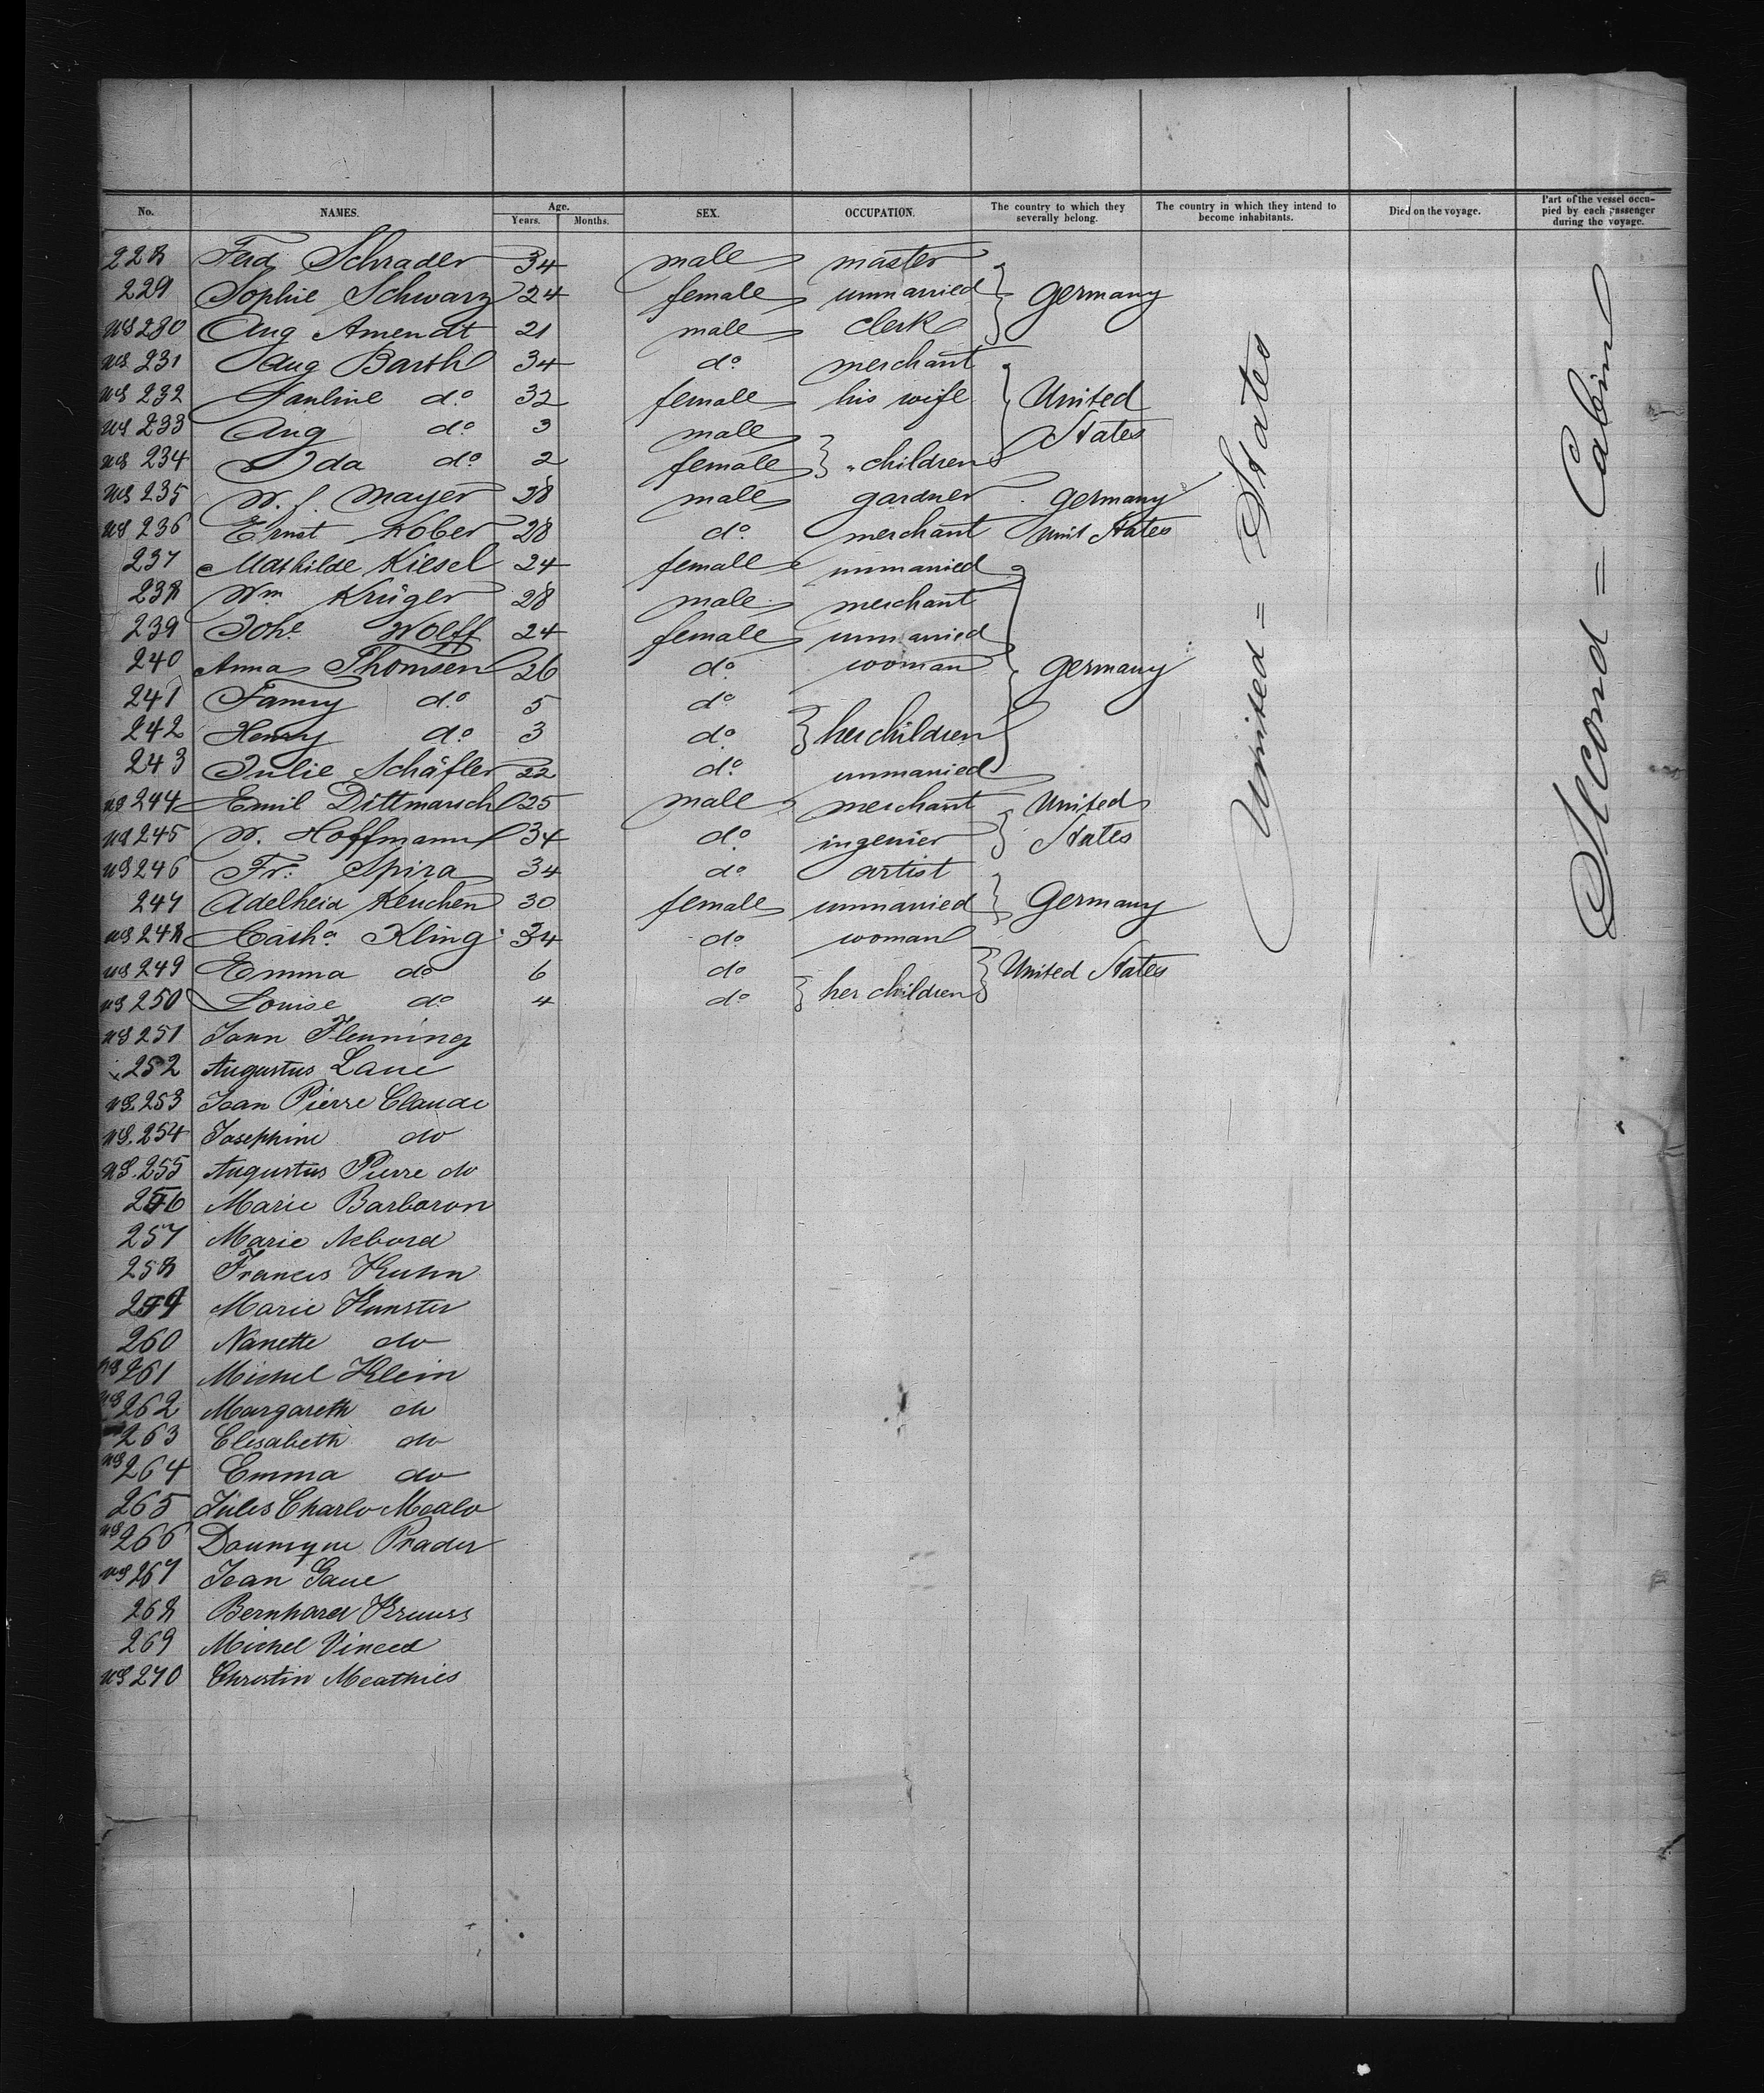 No. NAMES. Age. Years. Months. SEX. OCCUPATION. The country to which they severally belong. The country in which they intend to become inhabitants. Died on the voyage. Part of the vessel occupied by each passenger during the voyage.
228 Ferd Schrader 34 male master
229 Sophie Schwarz 24 female unmarried Germany
US 230 Aug Amendt 21 male clerk
US 231 Aug Barth 34 do merchant
US 232 Pauline do 32 female his wife United
US 233 Aug do 3 male States
US 234 Ida do 2 female children
US 235 W. f. Mayer 28 male gardner Germany
US 236 Ernst Kober 28 do merchant Unit States
237 Mathilde Kiesel 24 female unmarried
238 Wm Krüger 28 male merchant
239 Johe Wolff 24 female unmarried
240 Anna Thomsen 26 do woman Germany
241 Fanny do 5 do
242 Henry do 3 do her children
243 Julie Schäfler 22 do unmarried
US 244 Emil Dittmarsch 25 male merchant United
US 245 W. Hoffmann 34 do ingenier States
US 246 Fr: Spira 34 do artist
247 Adelheid Keuchen 30 female unmarried Germany
US 248 Catha Kling 34 do woman
US 249 Emma do 6 do United States
US 250 Louise do 4 do her children
US 251 Jonn Flemming
252 Augustus Lane
US 253 Jean Pierre Claude
US 254 Josephine do
US 255 Augustus Pierre do
256 Marie Barboron
257 Marie Nebord
258 Francis Kuhn
259 Marie Kunster
260 Nanette do
US 261 Michel Klein
US 262 Margareth do
263 Elisabeth do
US 264 Emma do
265 Jules Charlo Mealo
US 266 Doumique Prader
US 267 Jean Gaue
268 Bernhard
269 Michel Vinced
US 270 Christin Meathies
United = States
Second = Cabin